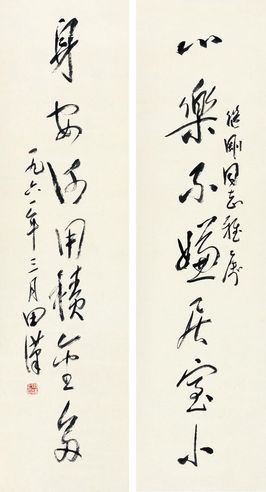 心樂不嫌居室小
繼剛同志雅屬
身安何用積金多
一九六一年三月田漢